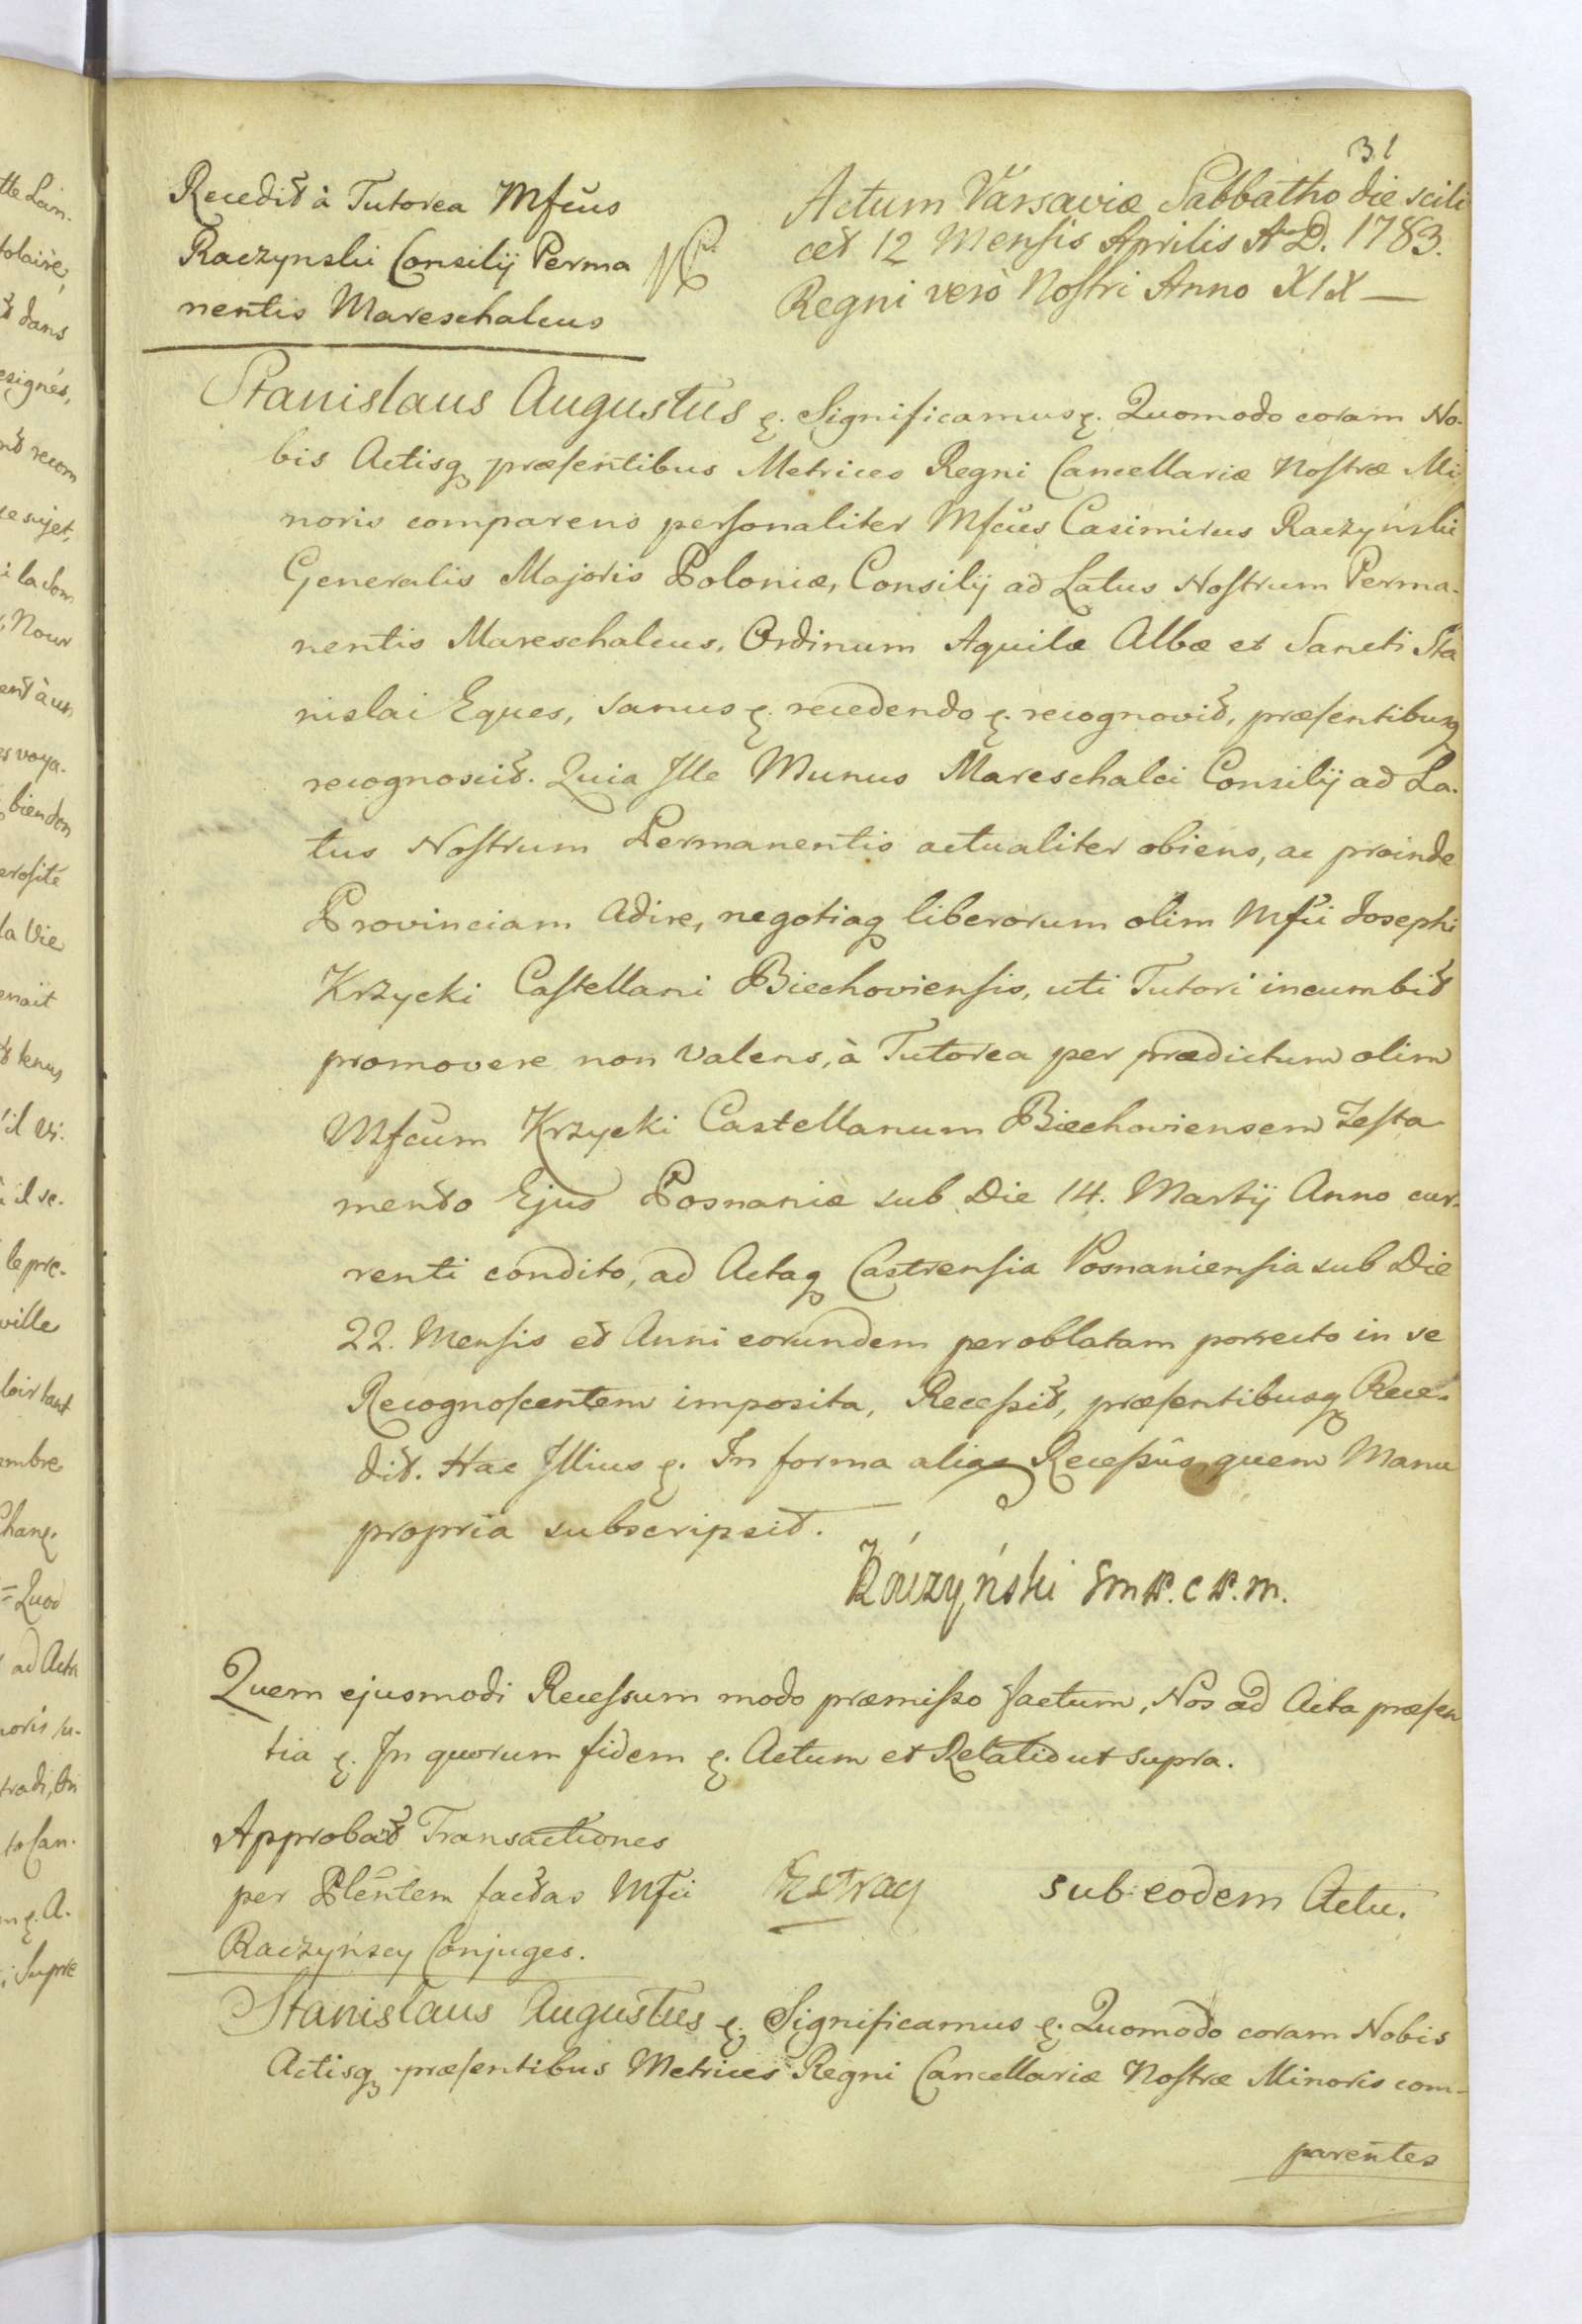 31
Recedit à Tutorea Mfcus
Raczynski Consilij Perma
nentis Mareschalcus
Actum Varsaviæ Sabbatho die scili
cet 12 Mensis Aprilis A. D. 1783.
Regni verò Nostri Anno XIX —
Stanislaus Augustus &. Significamus &. Quomodo coram No-
bis Actisq præsentibus Metrices Regni Cancellariæ Nostræ Mi
noris comparens personaliter Mfcus Casimirus Raczyński
Generalis Majoris Poloniæ, Consilij ad Latus Nostrum Perma-
nentis Mareschalcus, Ordinum Aquilæ Albæ et Sancti Sta
nislai Eques, sanus &. recedendo &. recognovit, præsentibusq
recognoscit. Quia Ille Munus Mareschalci Consilij ad La-
tus Nostrum Permanentis actualiter obiens, ac proinde
Provinciam adire, negotiaq liberorum olim Mfci Josephi
Krzycki Castellani Biechoviensis, uti Tutori incumbit
promovere non valens, à Tutorea per prædictum olim
Mfcum Krzycki Castellanum Biechoviensem Testa
mento Ejus Posnaniæ sub Die 14. Martij Anno cur-
renti condito, ad Actaq Castrensia Posnaniensia sub Die
22. Mensis et Anni eorundem per oblatam porrecto in se
Recognoscentem imposita, Recessit, præsentibusq Rece-
dit. Hac Illius &. In forma alias Recessûs quem Manu
propria subscripsit.
Raczyński
Quem ejusmodi Recessum modo præmisso factum, Nos ad Acta præsen
tia &. In quorum fidem &. Actum et Relatio ut supra.
Approbant Transactiones
per Plentem factas Mfci
Raczyńscy Conjuges.
Extraq
sub eodem Actu.
Stanislaus Augustus &. Significamus &. Quomodo coram Nobis
Actisq præsentibus Metrices Regni Cancellariæ Nostræ Minoris com-
parentes